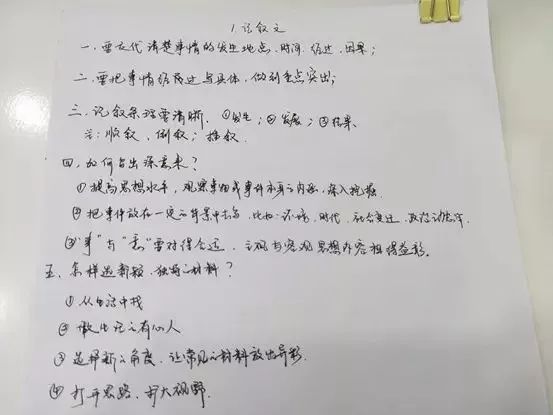 1. 记叙文
一、要交代清楚事情的发生地点、时间、经过、因果；
二、要把事情经过写具体，做到重点突出；
三、记叙条理要清晰、①发生；②发展；③结果
注：顺叙、倒叙；插叙.
四、如何写出深意来？
①提高思想水平，观察事物或事件本身之内涵，深入挖掘.
②把事件放在一定的背景中去写，比如：环境，时代，社会变迁，政治动态等
③"事"与"意"要对得合适，主观与客观思想内容相得益彰.
五、怎样选新颖、独特之材料？
①从生活中找
②做生活之有心人
③选择新之角度，让常见之材料放出异彩.
④打开思路，扩大视野.